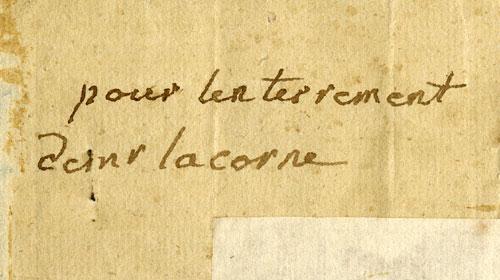 pour lenterrement
demr lacorne